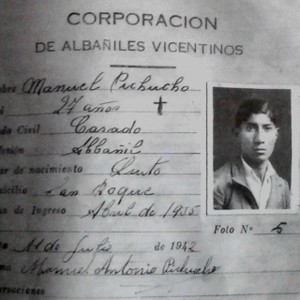 CORPORACION
DE ALBAÑILES VICENTINOS
bre Manuel Pichucho
d 27 años †
do Civil Casado
esión Albañil
ar de nacimiento Quito
icilio San Roque
a de Ingreso Abril de 1935
Foto Nº 5
de Julio de 1942
ma Manuel Antonio Pichucho
ervaciones